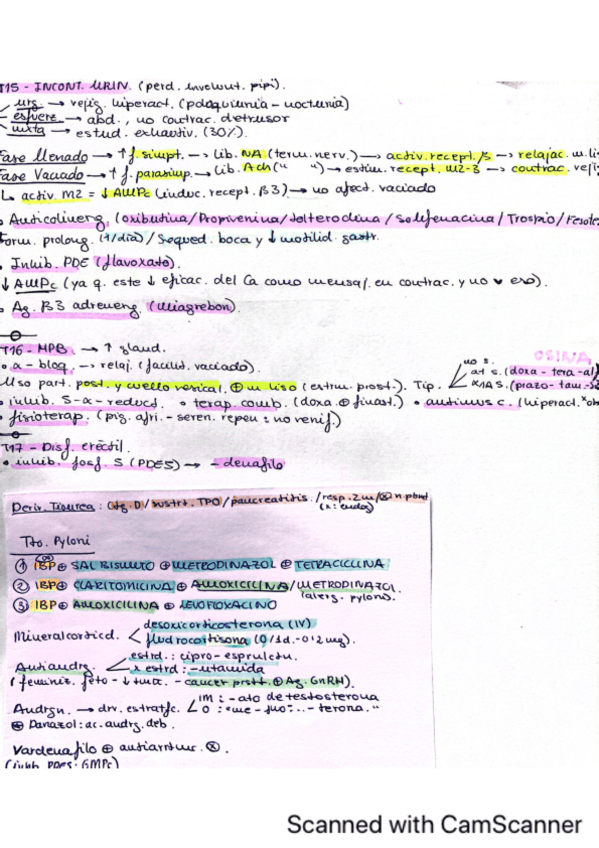 T15 - INCONT. URIN. (perd. involunt. pipi).
urg → vejig. hiperact. (polaquiuria - nocturia)
esfuerz. → abd., no contrac. detrusor
mixta → estud. exhaustiv. (30%).
Fase llenado → ↑ f. simpt. → lib. NA (term. nerv.) → activ. recept. β → relajac. m. li
Fase Vaciado → ↑ f. parasimp. → lib. Ach (" ") → estim. recept. M2-3 → contrac. veji
↳ activ. M2 = ↓ AMPc (induc. recept. β3) → no afect. vaciado
Anticolinerg. (oxibutina/Propiverina/tolterodina/Solifenacina/Trospio/Fesote
Form. prolong. (1/día)/Sequed. boca y ↓ motilid. gastr.
Inhib. PDE (flavoxato).
↓ AMPc (ya q. este ↓ eficac. del Ca como mensaj. en contrac. y no
Ag. β3 adrenerg. (Miragrebon).
T16 - HPB. → ↑ gland.
• α - bloq. → relaj. (facilit. vaciado).
OSINA
no s.
Uso part. post. y cuello vesical. ⊕ m. liso (estrm. prost.). Tip.
α1 s. (doxa - tera - al
α1A s. (prazo - tam -
• inhib. 5-α-reduct. • terap. comb. (doxa ⊕ finast.) • antimus c. (hiperact.
• fisioterap. (pig. afri. - seren. repen : no verif.)
T17 - Disf. eréctil.
• inhib. fosf. 5 (PDE5) → - denafilo
Deriv. Tiourea: / sustrt. TPO / pancreatitis. /
Tto. Pyloni
① IBP ⊕ SAL BISMUTO ⊕ METRODINAZOL ⊕ TETRACICLINA
② IBP ⊕ CLARITOMICINA ⊕ AMOXICILINA/METRODINAZOL.
(alerg. pylons).
③ IBP ⊕ AMOXICILINA ⊕ LEVOFLOXACINO
desoxicorticosterona (IV)
Mineralcorticd.
fludrocortisona (O/1d.-0'2mg).
estrd.: cipro-espruletn.
Antiandrg.
x estrd: -utamida
(feminiz. feto - ↓ tmax. - cancer prstt. ⊕ Ag. GnRH).
IM: -ato de testosterona
Andrgn. → drv. estratfc.
⊕ Danazol: ac. andrg. deb.
Vardenafilo ⊕ antiarrtmc. ⊗.
(inhb PDE5. GMPc)
Scanned with CamScanner